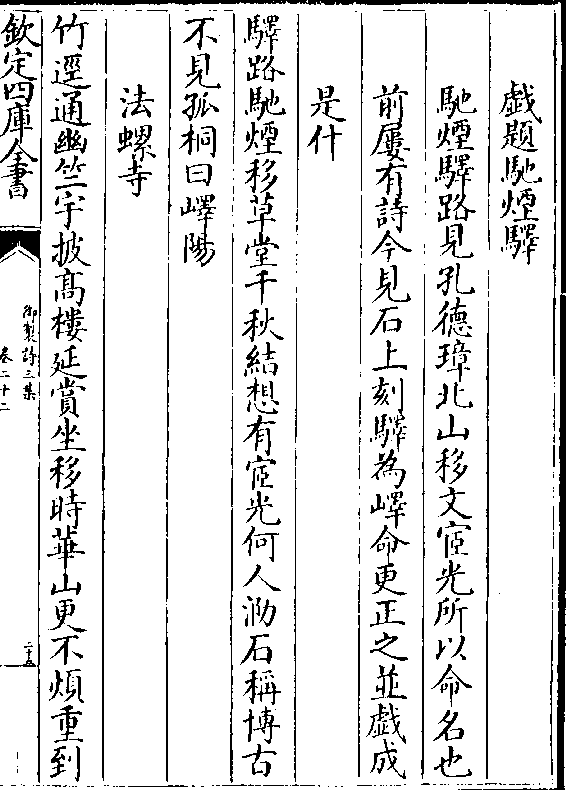 戯題馳煙驛
馳煙驛路見孔德璋北山移文宧光所以命名也
前屢有詩今見石上刻驛為嶧命更正之並戯成
是什
驛路馳煙移草堂千秋結想有宧光何人泐石稱博古
不見孤桐曰嶧陽
法螺寺
竹逕通幽竺宇披髙樓延賞坐移時華山更不煩重到
欽定四庫全書
御製詩三集
卷二十二
二十五